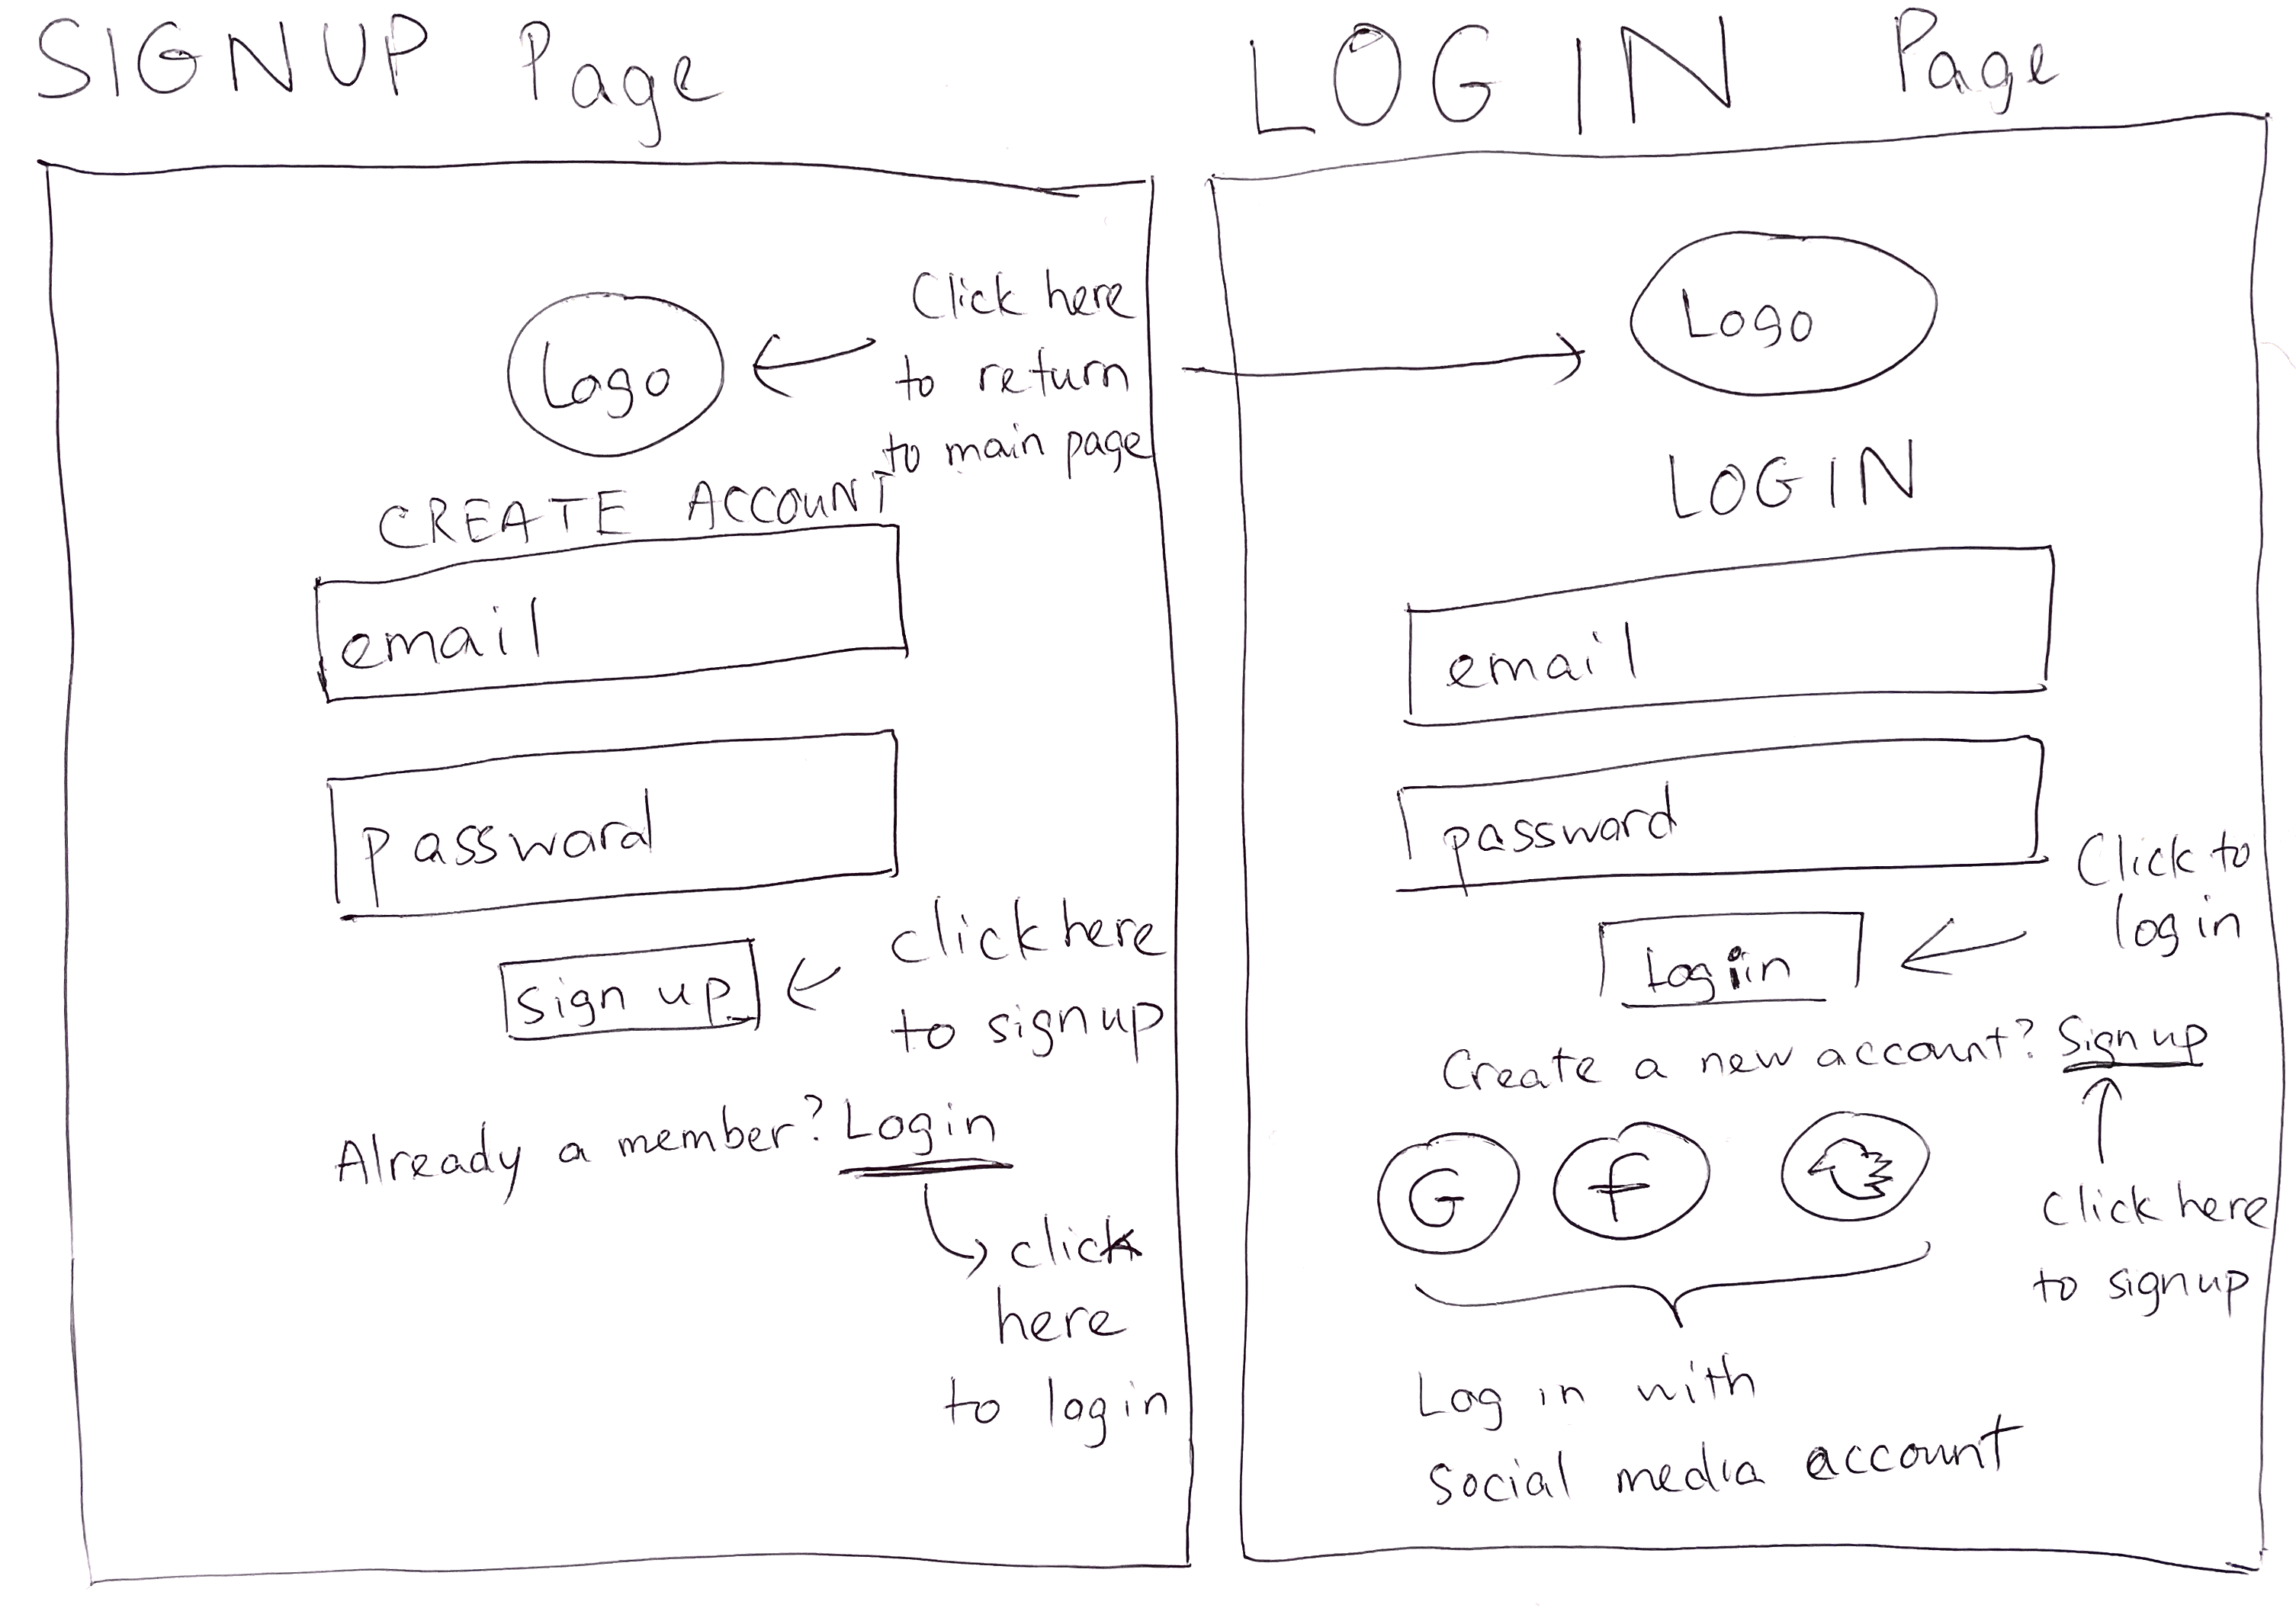 SIGNUP Page
Logo
Click here
to return
to main page
CREATE ACCOUNT
email
password
sign up
click here
to signup
Already a member? Login
click
here
to login
LOGIN Page
Logo
LOGIN
email
password
Login
Click to
login
Create a new account? Sign up
G f
Click here
to signup
Log in with
social media account